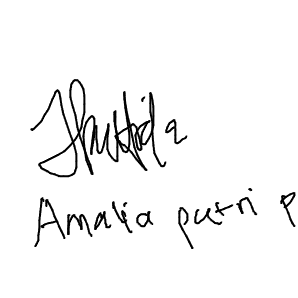 Amalia putri p